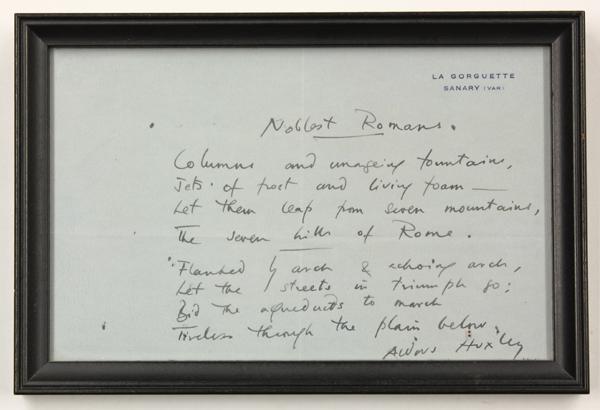 LA GORGUETTE
SANARY (VAR)
Noblest Romans.
Columns and unageing fountains,
Jets of frost and living foam —
Let them leap from seven mountains,
The seven hills of Rome.
Flanked by arch & echoing arch,
Let the streets in triumph go;
Bid the aqueducts to march
Tireless through the plain below.
Aldous Huxley